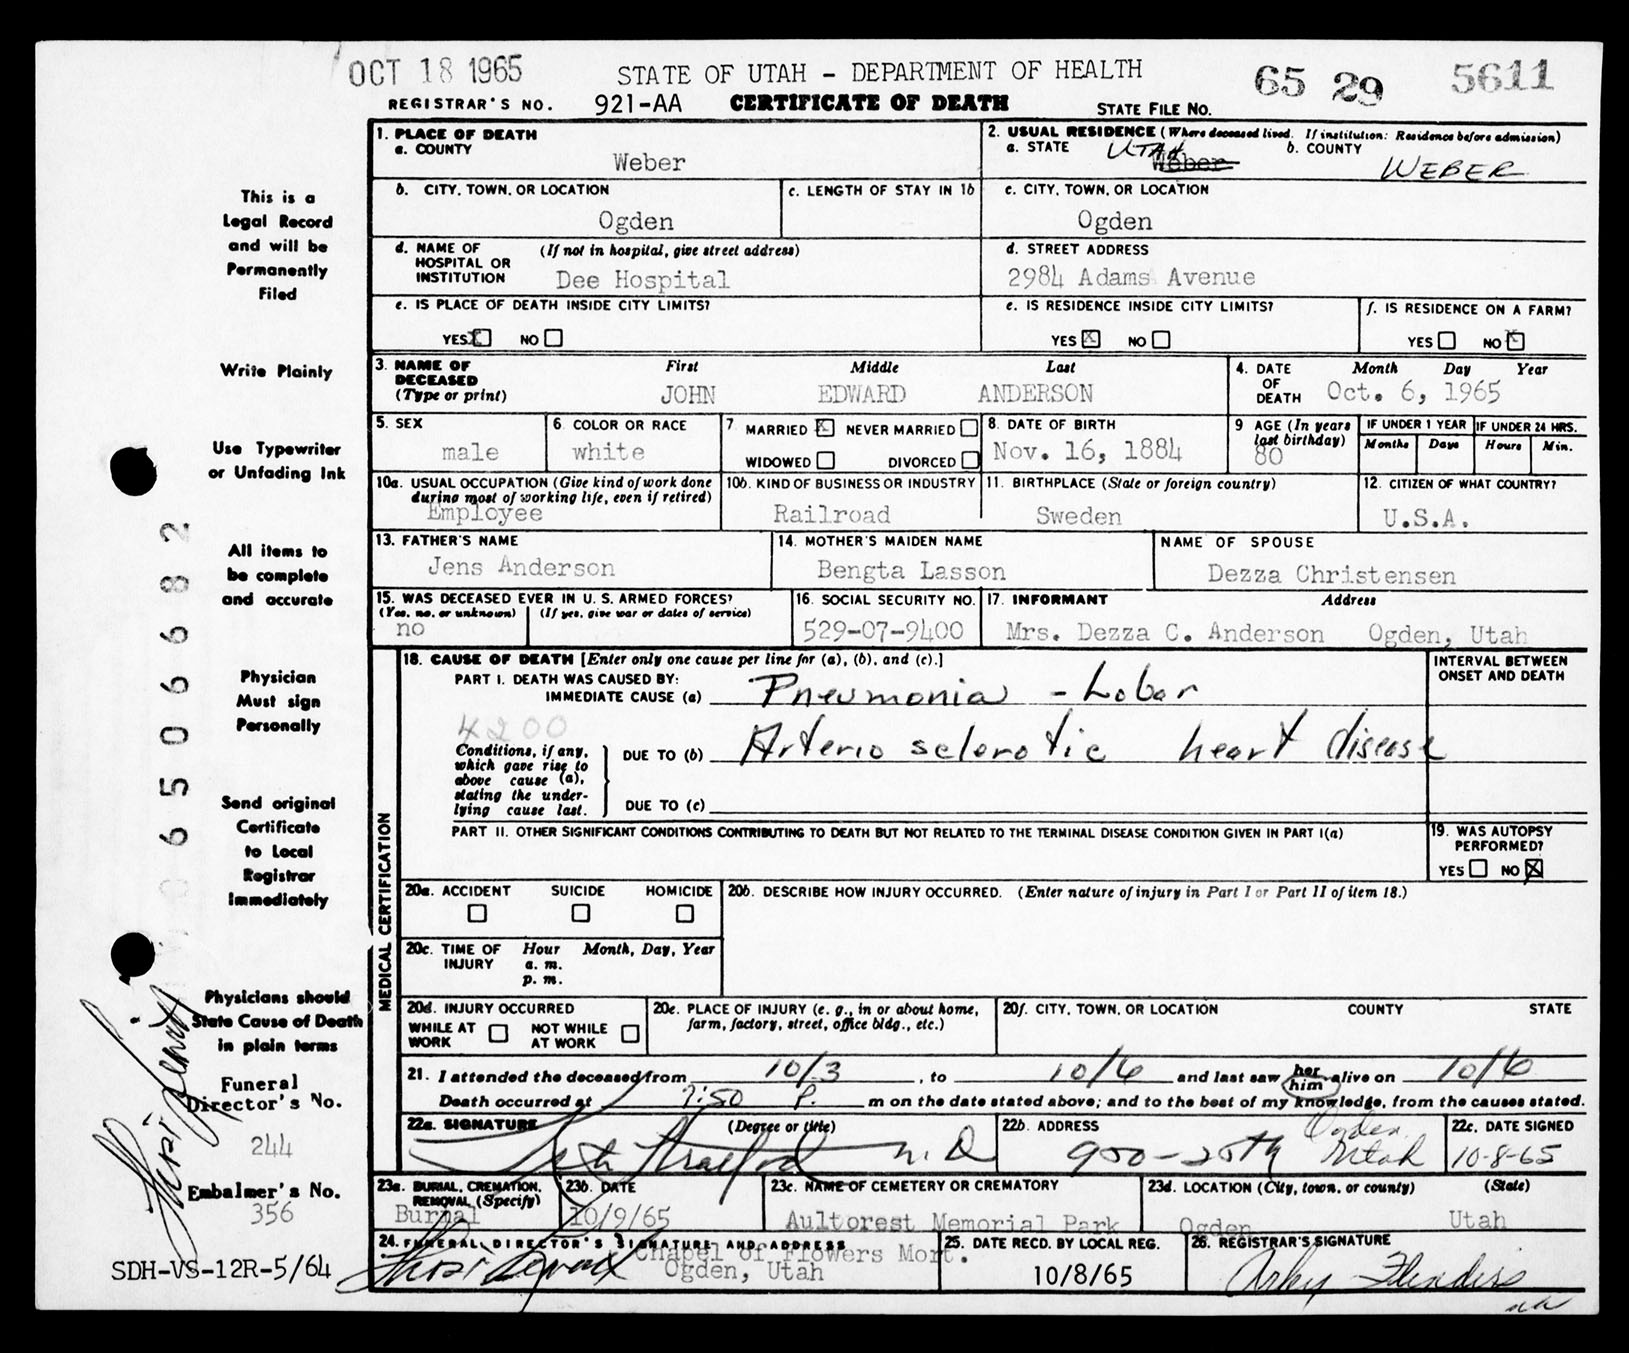 OCT 18 1965
STATE OF UTAH - DEPARTMENT OF HEALTH
65 29 5611
REGISTRAR'S NO. 921-AA CERTIFICATE OF DEATH STATE FILE NO.
1. PLACE OF DEATH
a. COUNTY
Weber
2. USUAL RESIDENCE (Where deceased lived. If institution: Residence before admission)
a. STATE UTAH Weber
b. COUNTY WEBER
b. CITY, TOWN, OR LOCATION
Ogden
c. LENGTH OF STAY IN 1b
c. CITY, TOWN, OR LOCATION
Ogden
d. NAME OF HOSPITAL OR INSTITUTION (If not in hospital, give street address)
Dee Hospital
d. STREET ADDRESS
2984 Adams Avenue
e. IS PLACE OF DEATH INSIDE CITY LIMITS?
YES X NO
e. IS RESIDENCE INSIDE CITY LIMITS?
YES X NO
f. IS RESIDENCE ON A FARM?
YES NO X
3. NAME OF DECEASED (Type or print)
First Middle Last
JOHN EDWARD ANDERSON
4. DATE OF DEATH
Month Day Year
Oct. 6, 1965
5. SEX
male
6. COLOR OR RACE
white
7. MARRIED X NEVER MARRIED
WIDOWED DIVORCED
8. DATE OF BIRTH
Nov. 16, 1884
9 AGE (In years last birthday)
80
IF UNDER 1 YEAR IF UNDER 24 HRS.
Months Days Hours Min.
10a. USUAL OCCUPATION (Give kind of work done during most of working life, even if retired)
Employee
10b. KIND OF BUSINESS OR INDUSTRY
Railroad
11. BIRTHPLACE (State or foreign country)
Sweden
12. CITIZEN OF WHAT COUNTRY?
U.S.A.
13. FATHER'S NAME
Jens Anderson
14. MOTHER'S MAIDEN NAME
Bengta Lasson
NAME OF SPOUSE
Dezza Christensen
15. WAS DECEASED EVER IN U.S. ARMED FORCES?
(Yes, no, or unknown) (If yes, give war or dates of service)
no
16. SOCIAL SECURITY NO.
529-07-9400
17. INFORMANT Address
Mrs. Dezza C. Anderson Ogden, Utah
MEDICAL CERTIFICATION
18. CAUSE OF DEATH [Enter only one cause per line for (a), (b), and (c).]
INTERVAL BETWEEN ONSET AND DEATH
PART I. DEATH WAS CAUSED BY:
IMMEDIATE CAUSE (a) Pneumonia - Lobar
4200
Conditions, if any, which gave rise to above cause (a), stating the underlying cause last.
DUE TO (b) Arterio sclerotic heart disease
DUE TO (c)
PART II. OTHER SIGNIFICANT CONDITIONS CONTRIBUTING TO DEATH BUT NOT RELATED TO THE TERMINAL DISEASE CONDITION GIVEN IN PART I(a)
19. WAS AUTOPSY PERFORMED?
YES NO X
20a. ACCIDENT SUICIDE HOMICIDE
20b. DESCRIBE HOW INJURY OCCURRED. (Enter nature of injury in Part I or Part II of item 18.)
20c. TIME OF INJURY Hour Month, Day, Year
a. m.
p. m.
20d. INJURY OCCURRED
WHILE AT WORK NOT WHILE AT WORK
20e. PLACE OF INJURY (e. g., in or about home, farm, factory, street, office bldg., etc.)
20f. CITY, TOWN, OR LOCATION COUNTY STATE
21. I attended the deceased from 10/3, to 10/6 and last saw her him alive on 10/6
Death occurred at 7:50 P. m on the date stated above; and to the best of my knowledge, from the causes stated.
22a. SIGNATURE (Degree or title)
M.D
22b. ADDRESS
950-25th Ogden, Utah
22c. DATE SIGNED
10-8-65
23a. BURIAL, CREMATION, REMOVAL (Specify)
Burial
23b. DATE
10/9/65
23c. NAME OF CEMETERY OR CREMATORY
Aultorest Memorial Park
23d. LOCATION (City, town, or county) (State)
Ogden Utah
24. FUNERAL DIRECTOR'S SIGNATURE AND ADDRESS
Chapel of Flowers Mort.
Ogden, Utah
25. DATE RECD. BY LOCAL REG.
10/8/65
26. REGISTRAR'S SIGNATURE
This is a
Legal Record
and will be
Permanently
Filed
Write Plainly
Use Typewriter
or Unfading Ink
All items to
be complete
and accurate
Physician
Must sign
Personally
Send original
Certificate
to Local
Registrar
Immediately
Physicians should
State Cause of Death
in plain terms
Funeral
Director's No.
244
Embalmer's No.
356
SDH-VS-12R-5/64
0 6 5 0 6 6 8 2